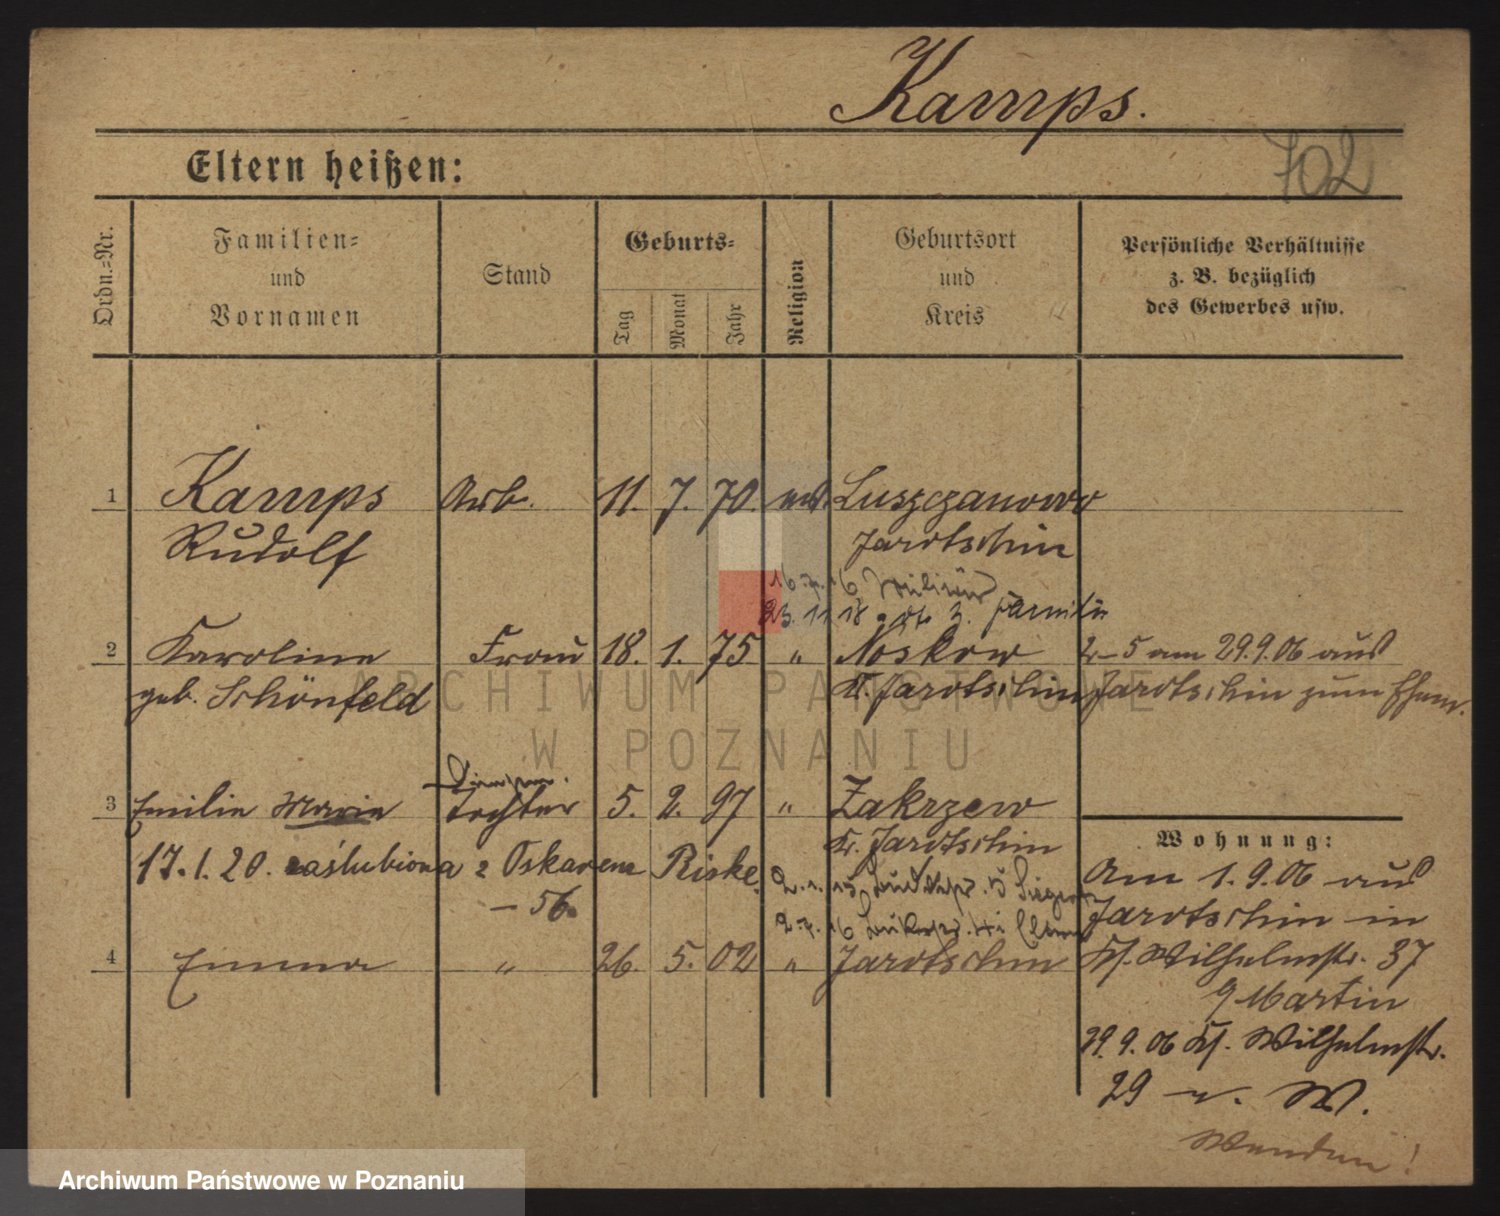 Kamps.
702
Eltern heißen:
Ordn.-Nr.
Familien-
und
Vornamen
Stand
Geburts-
Tag
Monat
Jahr
Religion
Geburtsort
und
Kreis
Persönliche Verhältnisse
z. B. bezüglich
des Gewerbes usw.
1 Kamps Arb. 11. 7. 70. Luszczanowo
Rudolf Jarotschin
16. 7. 16 Militär
23. 11. 18 z. Familie
2 Karoline Frau 18. 1. 75 " Noskow 2-5 am 29.9.06 aus
geb. Schönfeld Kr. Jarotschin Jarotschin zum Ehem.
ARCHIWUM PAŃSTWOWE
W POZNANIU
3 Emilie Marie Tochter 5. 2. 97 " Zakrzew
Kr. Jarotschin
Wohnung:
17.1.20. zaślubiona z Oskarem Riske.
Am 1.9.06 aus
– 56.
Jarotschin in
4 Emma " 26. 5. 02 " Jarotschin
Wilhelmstr. 37
Martin
29.9.06 Wilhelmstr.
29 W.
Wenden!
Archiwum Państwowe w Poznaniu